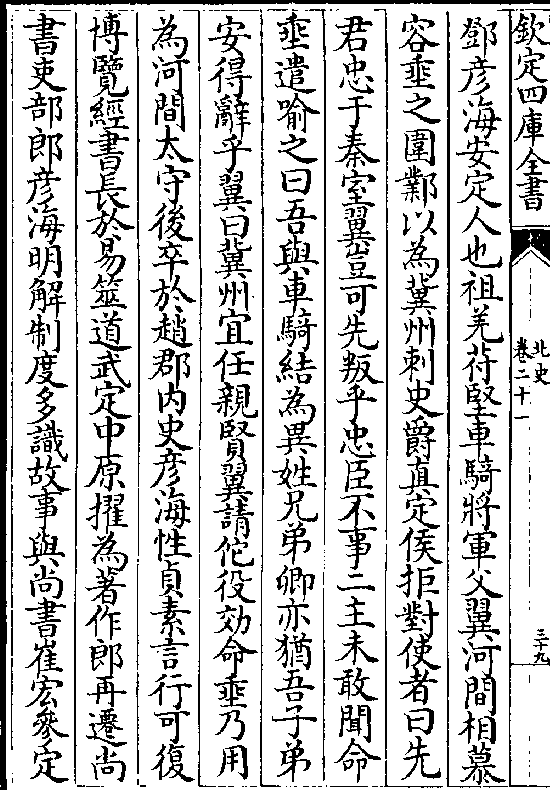 欽定四庫全書
北史
卷二十一
三十九
鄧彦海安定人也祖羌苻堅車騎將軍父翼河間相慕
容垂之圍鄴以為冀州刺史爵真定侯拒對使者曰先
君忠于秦室翼豈可先叛乎忠臣不事二主未敢聞命
垂遣喻之曰吾與車騎結為異姓兄弟卿亦猶吾子弟
安得辭乎翼曰冀州宜任親賢翼請佗役効命垂乃用
為河間太守後卒於趙郡内史彦海性貞素言行可復
博覽經書長於易筮道武定中原擢為著作郎再遷尚
書吏部郎彦海明解制度多識故事與尚書崔宏參定